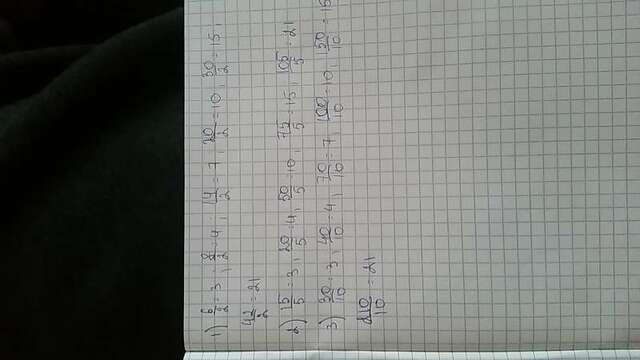 1) 6/2 = 3 ; 8/2 = 4 ; 14/2 = 7, 20/2 = 10, 30/2 = 15,
42/2 = 21
2) 15/5 = 3, 20/5 = 4, 50/5 = 10, 75/5 = 15, 105/5 = 21
3) 30/10 = 3, 40/10 = 4, 70/10 = 7, 100/10 = 10, 150/10 = 15
210/10 = 21